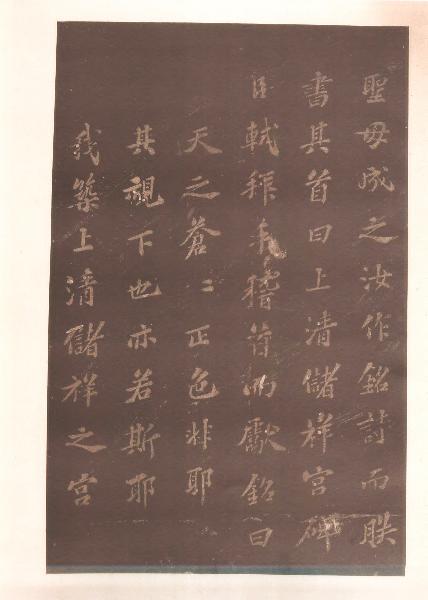 聖母成之汝作銘詩而朕
書其首曰上清儲祥宮碑
臣軾拜手稽首而獻銘曰
天之蒼〻正色非耶
其視下也亦若斯耶
我築上清儲祥之宮